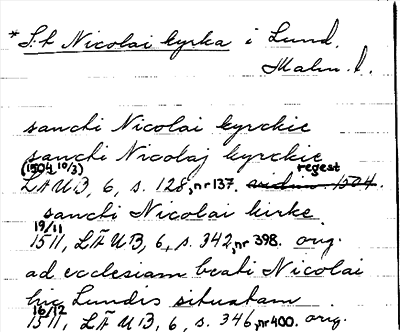 *S:t Nicolai kyrka i Lund.
Malm. l.
sancti Nicolai kyrckie
sancti Nicolaj kyrckie
(1504 10/3) regest
LÄUB, 6, s. 128, nr 137. vidim 1504.
sancti Nicolai kirke
19/11
1511, LÄUB, 6, s. 342, nr 398. orig.
ad ecclesiam beati Nicolai
hic Lundis situatam
16/12
1511, LÄUB, 6, s. 346, nr 400. orig.